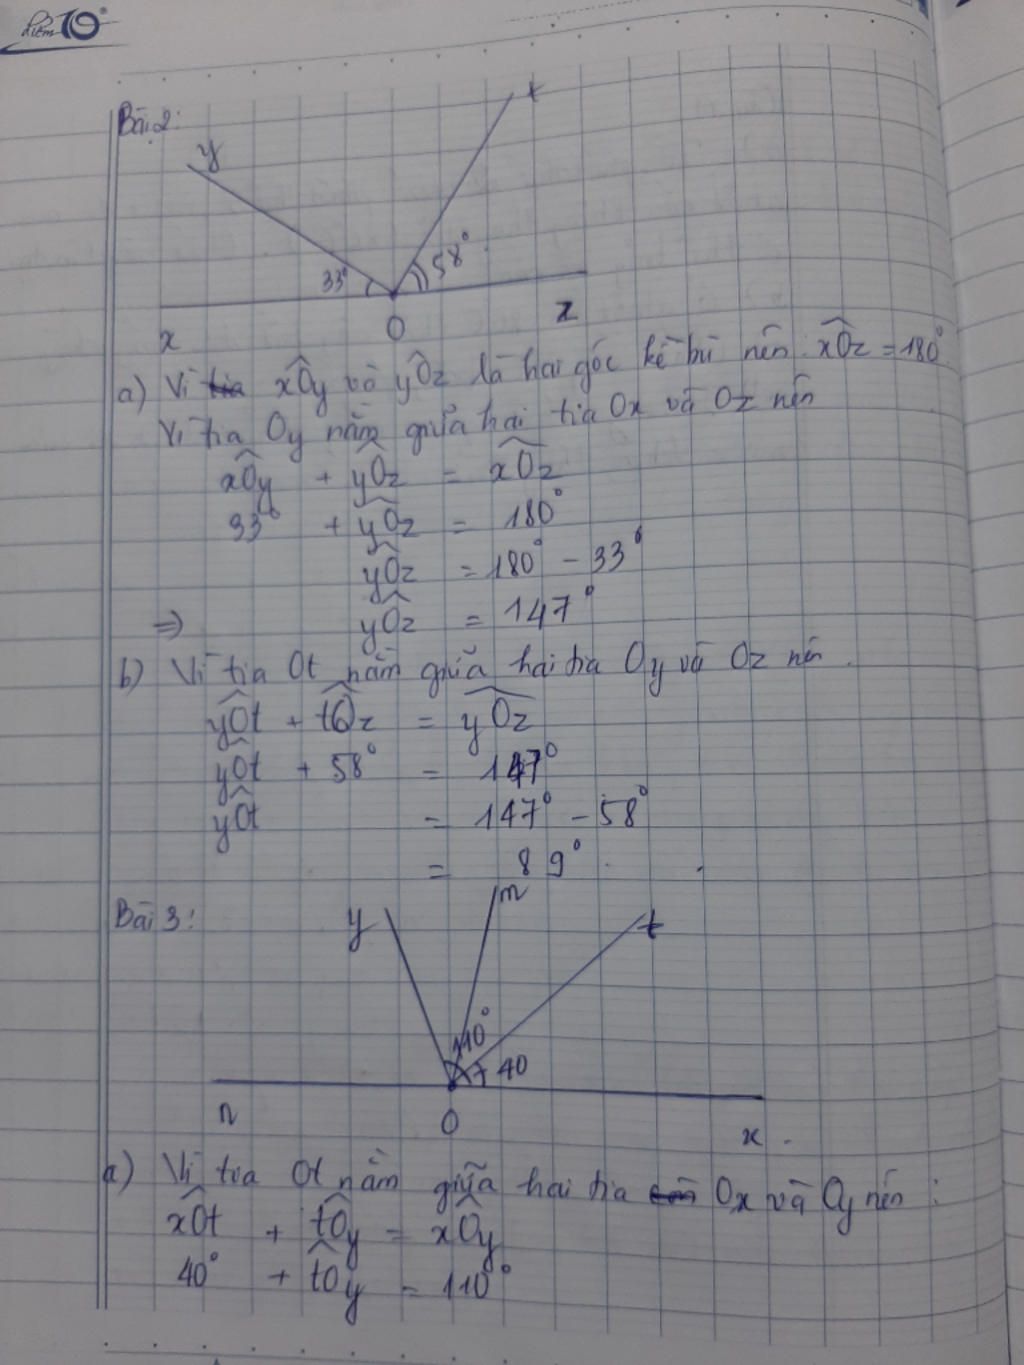 Điểm 10
Bài 2:
y
t
33°
58°
x
O
z
a) Vì xOy và yOz là hai góc kề bù nên xOz = 180°
Vì tia Oy nằm giữa hai tia Ox và Oz nên
xOy + yOz = xOz
33° + yOz = 180°
yOz = 180° - 33°
=> yOz = 147°
b) Vì tia Ot nằm giữa hai tia Oy và Oz nên
yOt + tOz = yOz
yOt + 58° = 147°
yOt = 147° - 58°
= 89°.
Bài 3:
y
m
t
110°
40
n
O
x
a) Vì tia Ot nằm giữa hai tia Ox và Oy nên:
xOt + tOy = xOy
40° + tOy = 110°